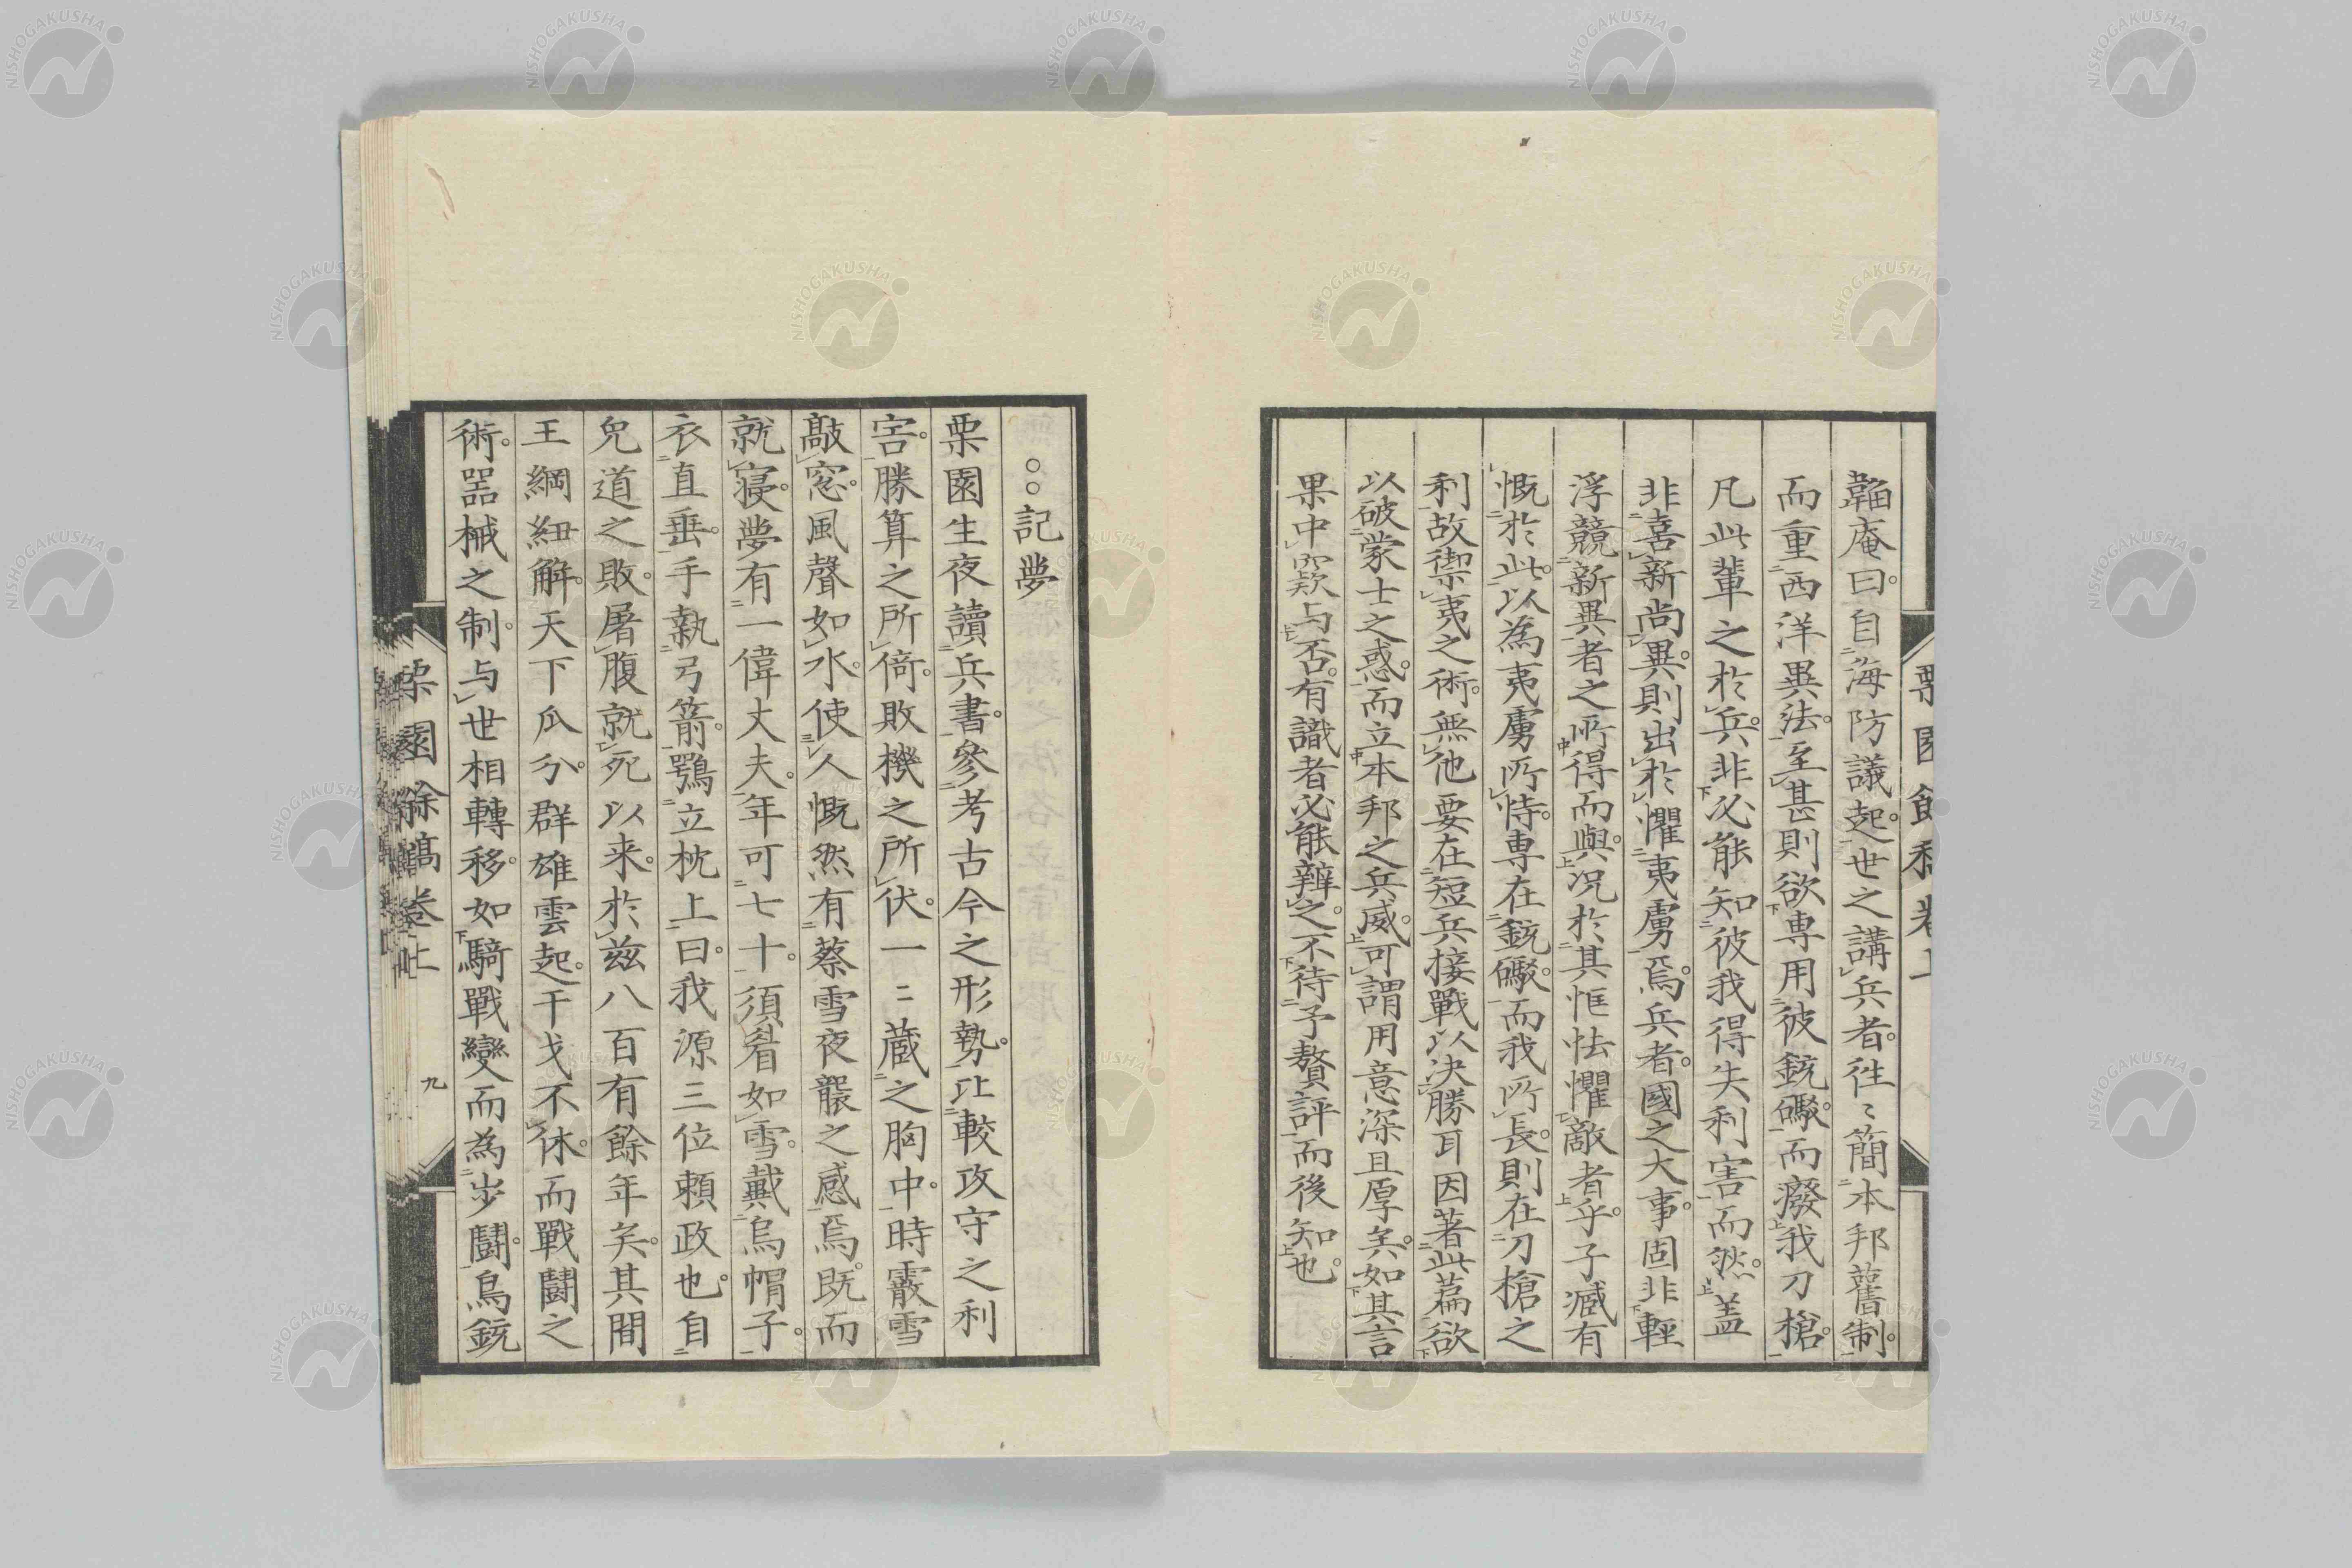 韞庵曰。自海防議起。世之講兵者。徃〻簡本邦舊制。
而重西洋異法。至甚則欲専用彼銃礟。而癈我刀槍。
凡此輩之於兵。非必能知彼我得失利害而然。盖
非喜新尚異。則出於懼夷虜焉。兵者。國之大事。固非輕
浮競新異者之所得而與。况於其恇怯懼敵者乎。子臧有
慨於此。以為夷虜所恃。専在銃礟。而我所長。則在刀槍之
利。故禦夷之術。無他。要在短兵接戰以决勝耳。因著此篇。欲
以破蒙士之惑。而立本邦之兵威。可謂用意深且厚矣。如其言
果中窾与否。有識者必能辨之。不待予贅評而後知也。
栗園餘稿卷上
○○記夢
栗園生夜讀兵書。參考古今之形勢。比較攻守之利
害。勝算之所倚。敗機之所伏。一〻蔵之胸中。時霰雪
敲窓。風聲如水。使人慨然有蔡雪夜襲之感焉。既而
就寝。夢有一偉丈夫。年可七十。須眉如雪。戴烏帽子。
衣直垂。手執弓箭。鶚立枕上。曰。我源三位賴政也。自
免道之敗。屠腹就死以来。於兹八百有餘年矣。其間
王綱紐解。天下瓜分。群雄雲起。干戈不休。而戰鬪之
術。噐械之制。与世相轉移。如騎戰變而為步鬪。鳥銃
栗園餘稿卷上
九